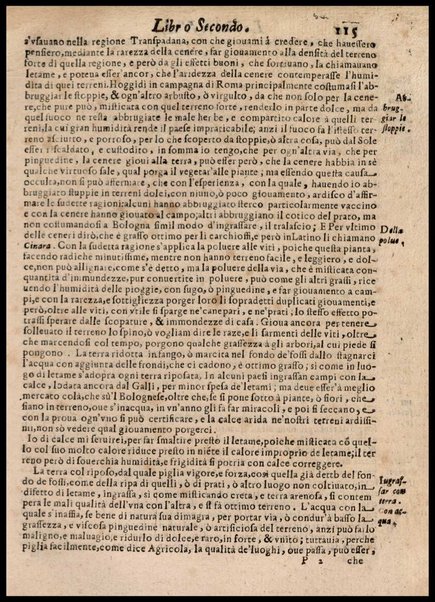 Libro Secondo.
115
s'vsauano nella regione Transpadana, con che giouami à credere, che hauessero
pensiero, mediante la rarezza della cenere, far giouamento alla densità del terreno
forte di quella regione, e però da gli effetti buoni, che sortiuano, la chiamauano
letame, e poteua esser ancor, che l'aridezza della cenere contemperasse l'humi-
dità di quei terreni. Hoggidi in campagna di Roma principalmente costumasi l'ab-
bruggiar le stoppie, & ogn'altro arbusto, ò virgulto, da che non solo per la cene-
re, che pure può, misticata con quel terreno forte, renderlo in parte dolce, ma da
quel fuoco ne resta abbrugiate le male herbe, e compartito calore à quelli ter-
reni, la cui gran humidità rende il paese impraticabile; anzi il fuoco fa l'istesso ter-
reno asciutto, e porroso, per lo che scoperto da stoppie, ò altra cosa, può dal Sole
esser riscaldato, e custodito, in somma io tengo, che per ogn'altra via, che per
pinguedine, la cenere gioui alla terra, può esser però, che la cenere habbia in sè
qualche virtuoso sale, qual porga il vegetar'alle piante; ma essendo questa causa
occulta, non si può affermare, che con l'esperienza, con la quale, hauendo io ab-
bruggiato stuppie in terreni dolci, con niuno, ò poco giouamento, ardisco d'affir-
mare le sudette ragioni: alcuni hanno abbruggiato sterco particolarmente vaccino
e con la cenere hanno giouato al campo; altri abbruggiano il cotico del prato, ma
non costumandosi à Bologna simil modo d'ingrassare, il tralascio; E Per vltimo
delle ceneri dirò, che è grasso ottimo per li carchioffi, e però in Latino li chiamano
Cinara. Con la sudetta ragione s'applica la poluere alle viti, poiche questa pianta,
facendo radiche minutissime, mentre non hanno terreno facile, e leggiero, e dol-
ce, non può allignare, come s'è detto, ma la poluere della via, che è misticata con
quantità d'immondezze, pur conuertite in poluere, può come gli altri grassi, rice-
uendo l'humidità delle pioggie, con sugo, ò pinguedine, e far giouamento a cam-
pi, e con la rarezza, e sottigliezza porger loro li sopradetti duplicati giouamenti, e
però, oltre alle viti, con vtile si sparge nè canepari, e nè prati, lo stesso effetto po-
trassi sperare dalle scopature, & immondezze di casa. Gioua ancora per tenere
solleuato il terreno lo spino, ò vogliam dire le raze, e li sarmenti delle viti, oltre,
che marcendosi col tempo, porgono qualche grassezza à gli arbori, al cui piede si
pongono. La terra ridotta in fango, ò marcita nel fondo de'fossi dallo stagnarci
l'acqua con aggiunta delle fronde, che ci cadono, è ottimo grasso; si come in luo-
go di letame s'adopra ogni terra riposata. In alcuni paesi ingrassan campi con la
calce, lodata ancora dal Galli, per minor spesa de'letami; ma deue esser'à meglio
mercato cola, che sù'l Bolognese, oltre che, se si pone sotto à piante, ò fiori, che
siano in terreno, oue s'inacqua, in vn'anno gli fa far miracoli, e poi si seccano, e
con la proua ogn'vno si può certificare, e la calce arida ne'nostri terreni ardissi-
mi, non sò vedere qual giouamento porgerci.
Io di calce mi seruirei, per far smaltire presto il letame, poiche misticata co quel-
lo col suo molto calore riduce presto in niéte il calore improprio de letame; il ter
reno però di souerchia humidità, e frigidità si potria con calce correggere.
La terra col riposo, dal quale piglia vigore, e forza, così quella già detta del fon-
do de fossi, come della ripa di quelli, ò di prati, ò altro luogo non coltiuato, in-
difetto di letame, ingrassa, si come misticando creta, e terra arenosa, si contem
pera le mali qualità dell'vna con l'altra, e si fà ottimo terreno. L'acqua con la
quale s'inassia, se bene di natura sua dimagra, per portar via, ò condur'à basso la
grassezza, e viscosa pinguedine naturale, ò artificiosa, si tiene, può anzi far lo
maligno, e maluagio, e ridurlo di dolce, e raro, in forte, & vnito; tuttauia, perche
piglia facilmente, come dice Agricola, la qualità de'luoghi, oue passa, può esser,
P 2 che
Ab-
brug-
giar le
stoppie.
Della
polue.
Ingras-
sar con
terra.
Con ac-
qua.